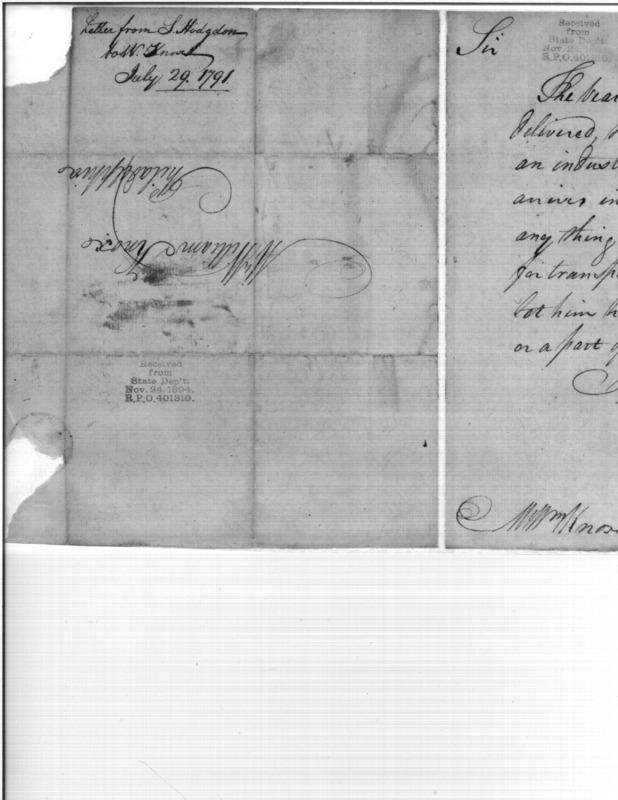 Letter from S Hodgdon
to W. Knox
July 29. 1791
Mr William Knox
Philadelphia
Received
from
State Dep't.
Nov. 24, 1894.
R.P.O. 401310.
Received
from
State Dep't.
Nov. 24
R.P.O. 401310.
Sir
The bear
delivered,
an indust
arrives in
any thing
for transp
let him h
or a part of
Mr Wm Knox